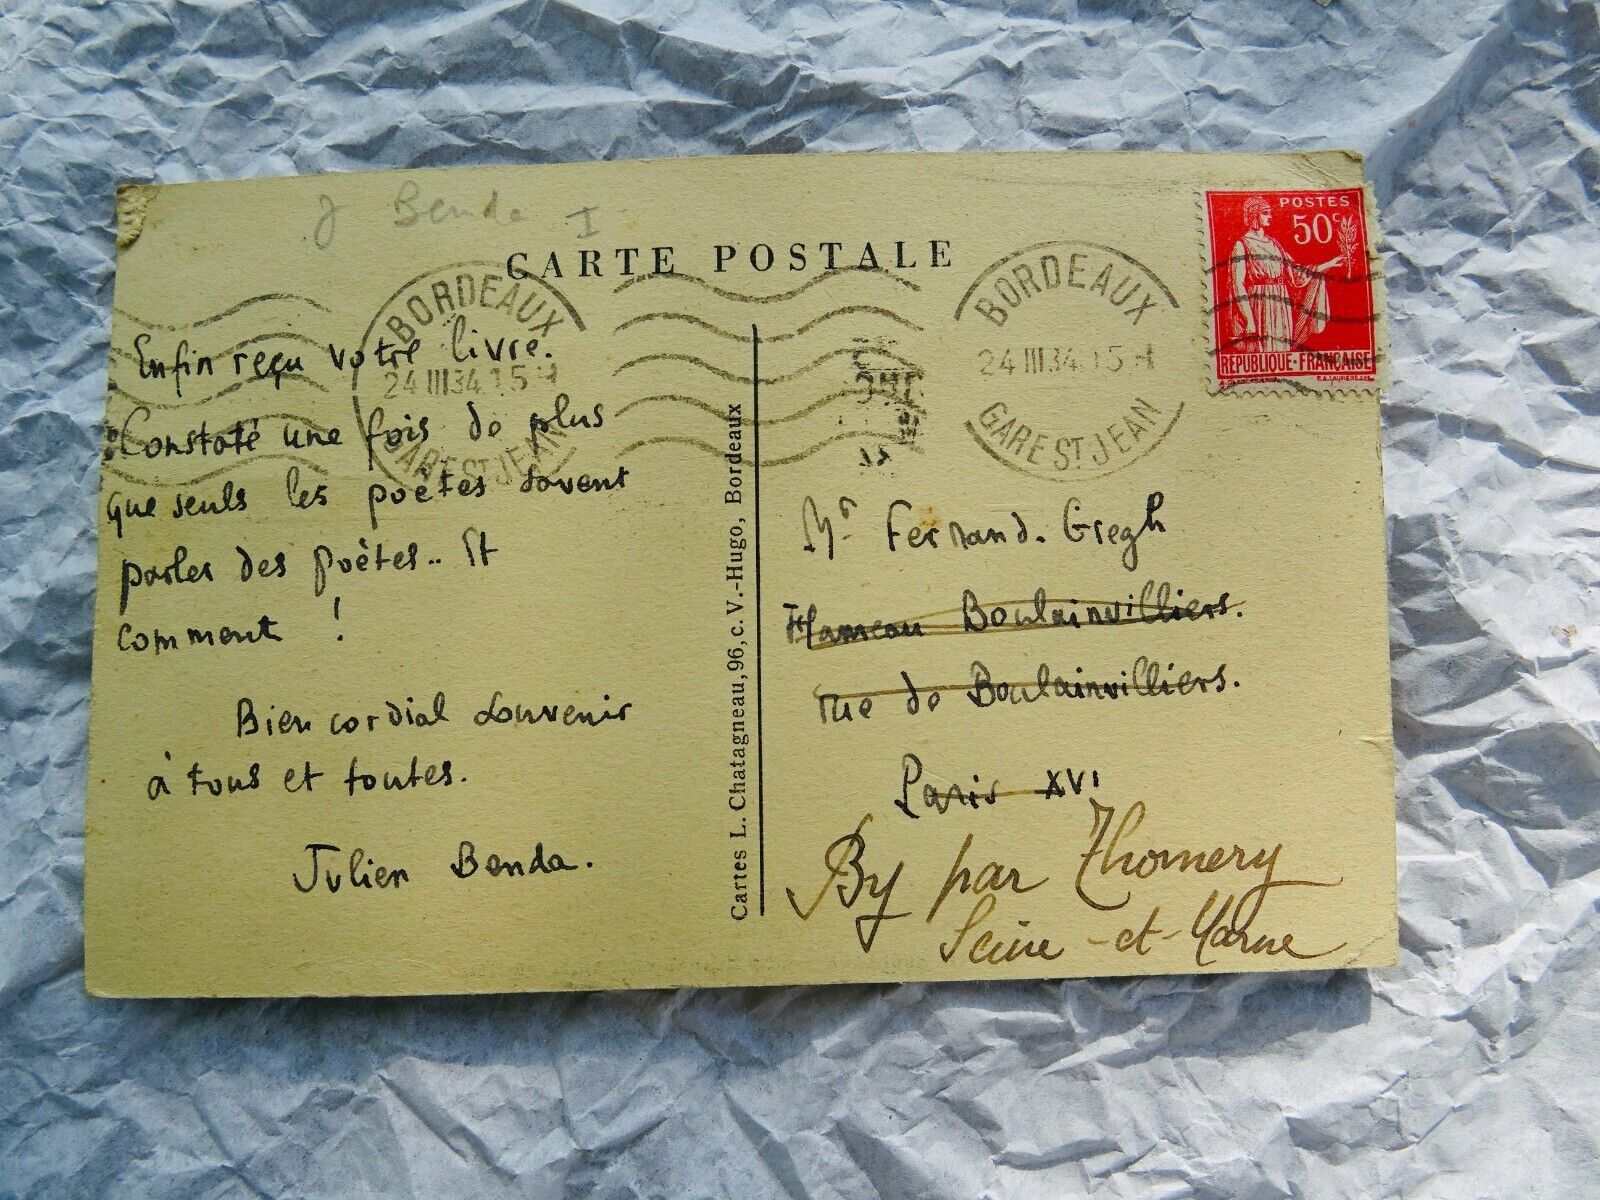 J Benda I
CARTE POSTALE
BORDEAUX
24 III 34 15 H
GARE ST JEAN
BORDEAUX
24 III 34 15 H
GARE ST JEAN
POSTES
50c
REPUBLIQUE-FRANÇAISE
Enfin reçu votre livre.
Constaté une fois de plus
que seuls les poètes savent
parler des poètes.. Et
comment !
Bien cordial souvenir
à tous et toutes.
Julien Benda.
Cartes L. Chatagneau, 96, c. V.-Hugo, Bordeaux
Mr Fernand. Gregh
Hameau Boulainvilliers.
rue de Boulainvilliers.
Paris XVI
By par Thomery
Seine-et-Marne